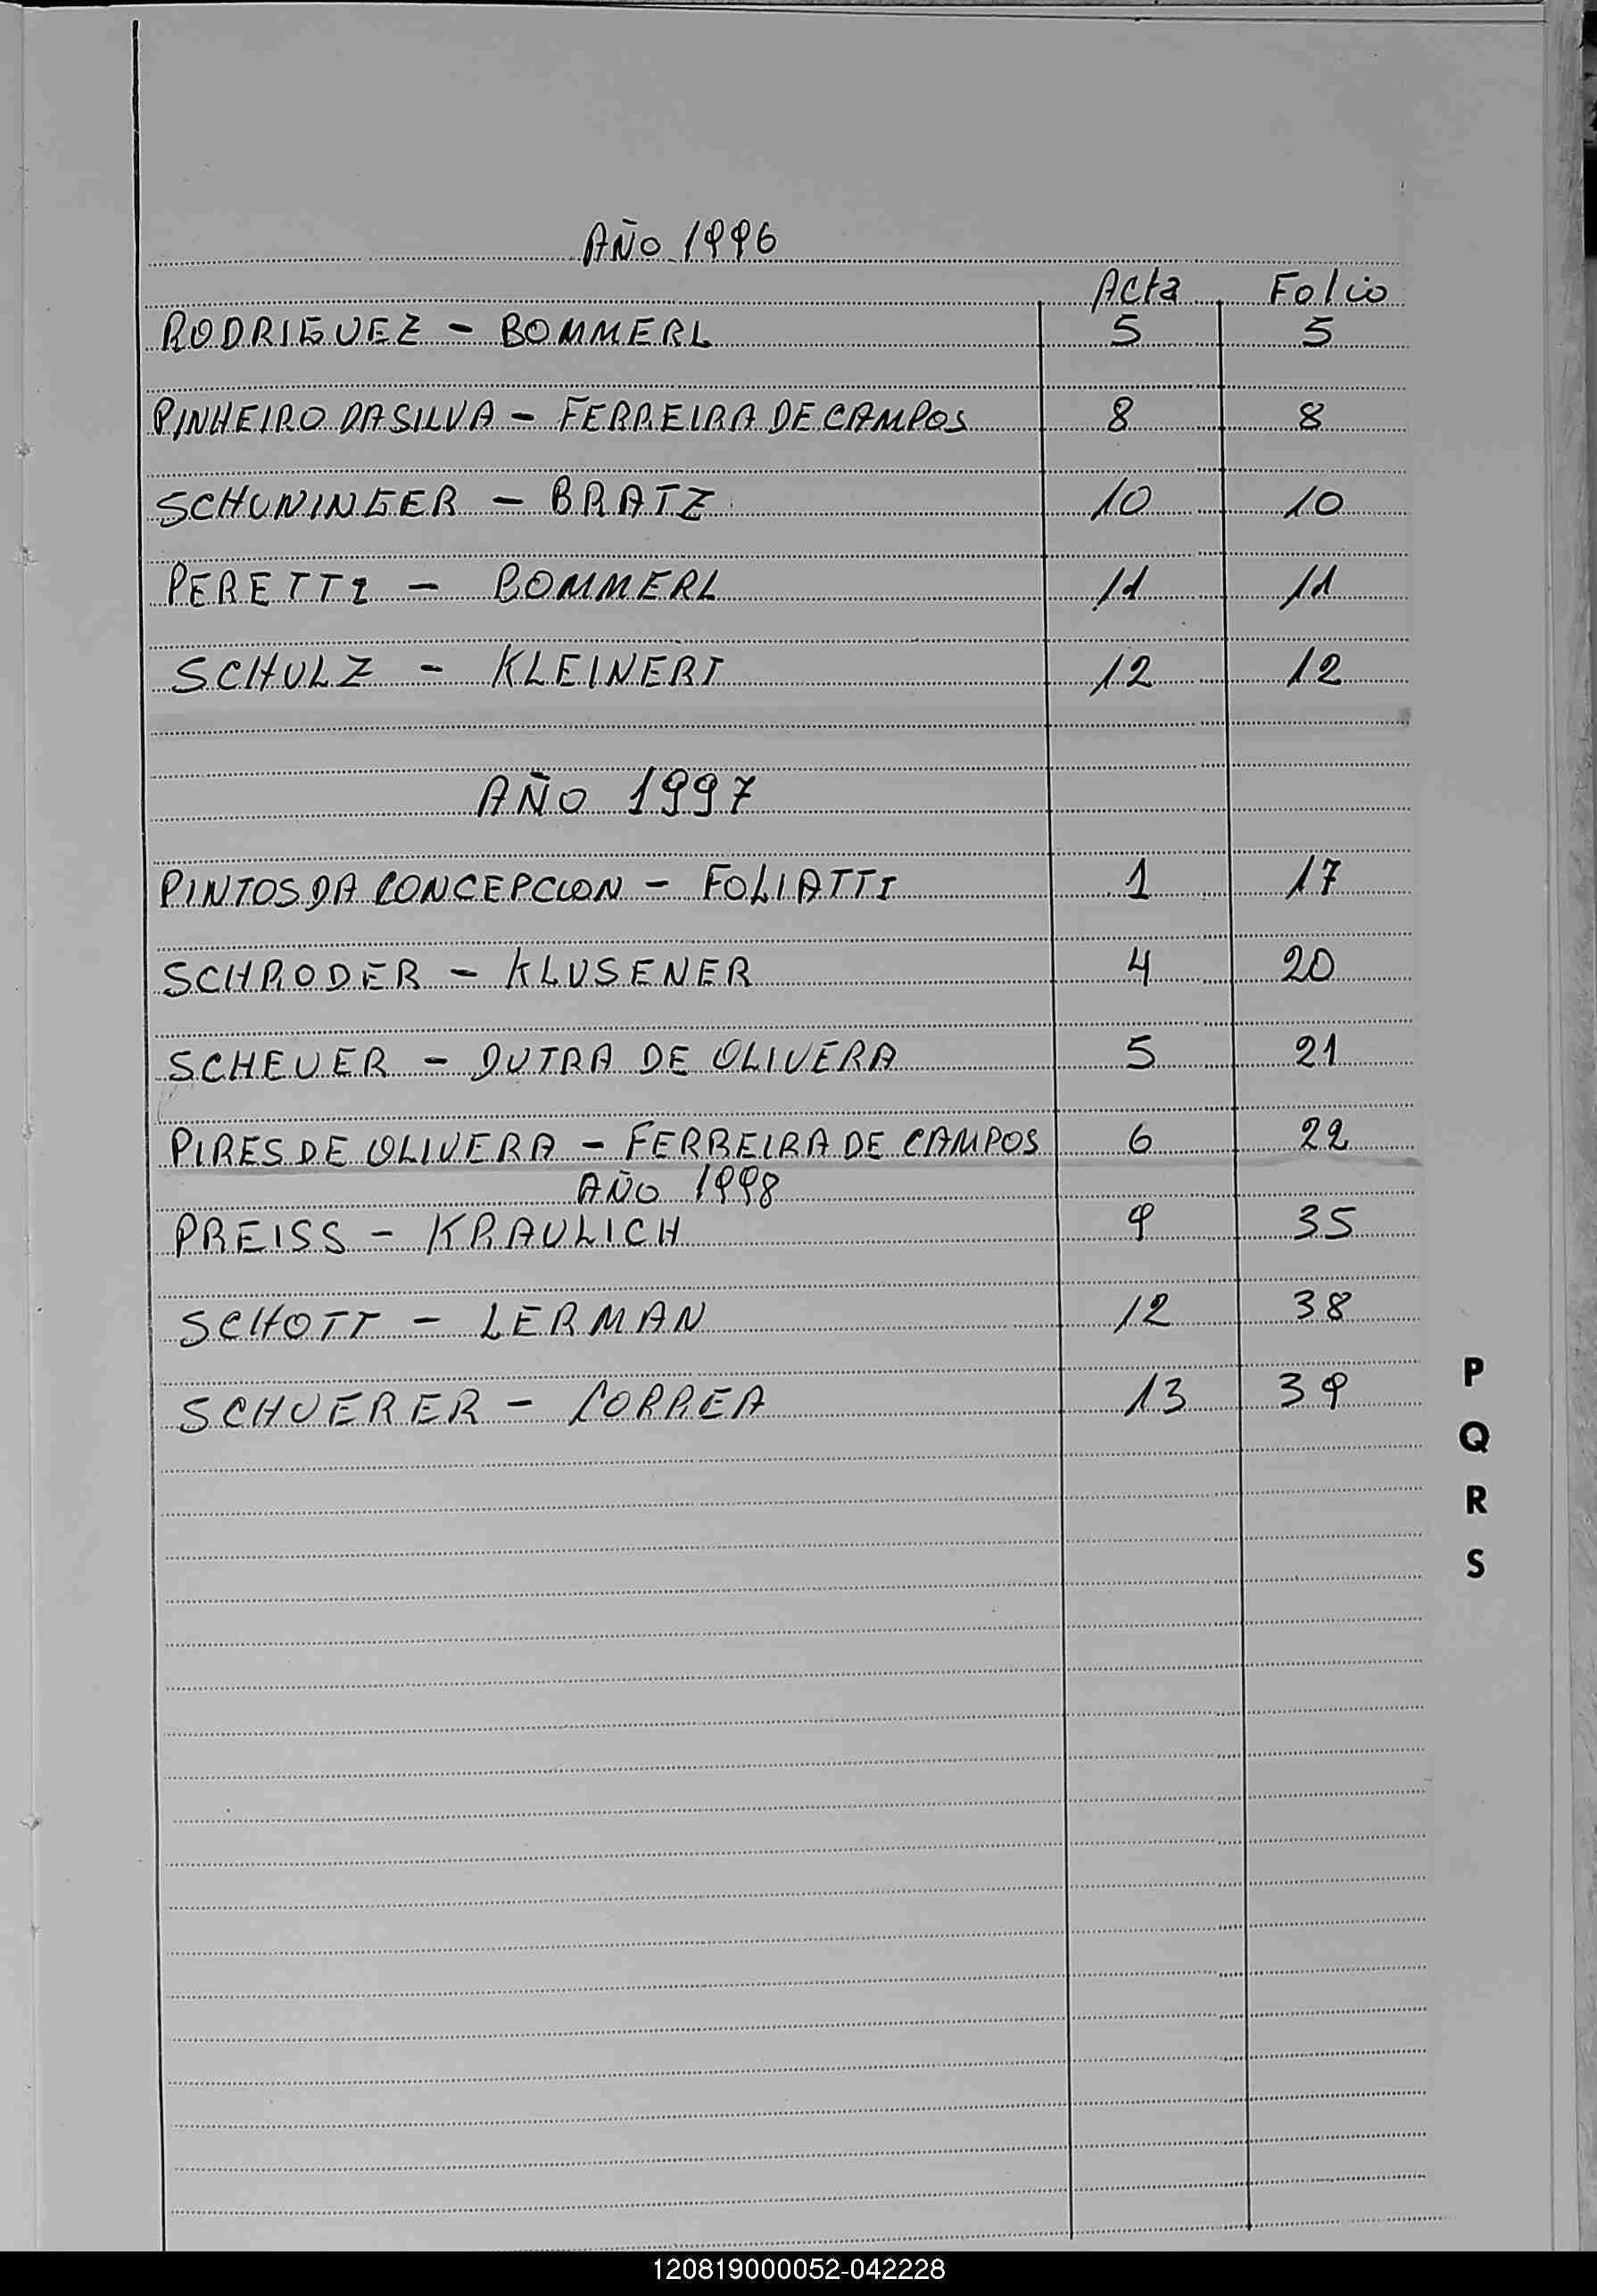 AÑO 1996
Acta Folio
RODRIGUEZ - BOMMERL 5 5
PINHEIRO DA SILVA - FERREIRA DE CAMPOS 8 8
SCHUNINGER - BRATZ 10 10
PERETTI - BOMMERL 11 11
SCHULZ - KLEINERT 12 12
AÑO 1997
PINTOS DA CONCEPCION - FOLIATTI 1 17
SCHRODER - KLUSENER 4 20
SCHEUER - DUTRA DE OLIVERA 5 21
PIRES DE OLIVERA - FERREIRA DE CAMPOS 6 22
AÑO 1998
PREISS - KRAULICH 9 35
SCHOTT - LERMAN 12 38
SCHUERER - CORREA 13 39
P
Q
R
S
120819000052-042228